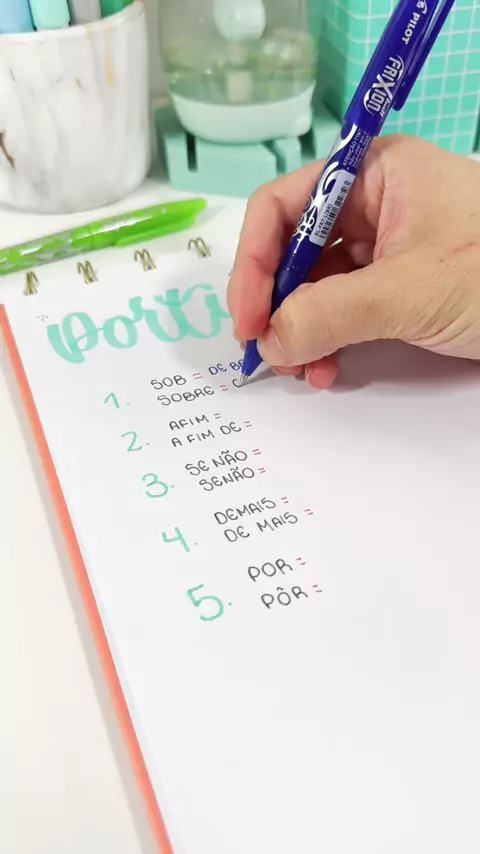 1. SOB = DE
SOBRE =
2. AFIM =
A FIM DE =
3. SE NÃO =
SENÃO =
4. DEMAIS =
DE MAIS =
5. POR =
PÔR =
PILOT
FRIXION